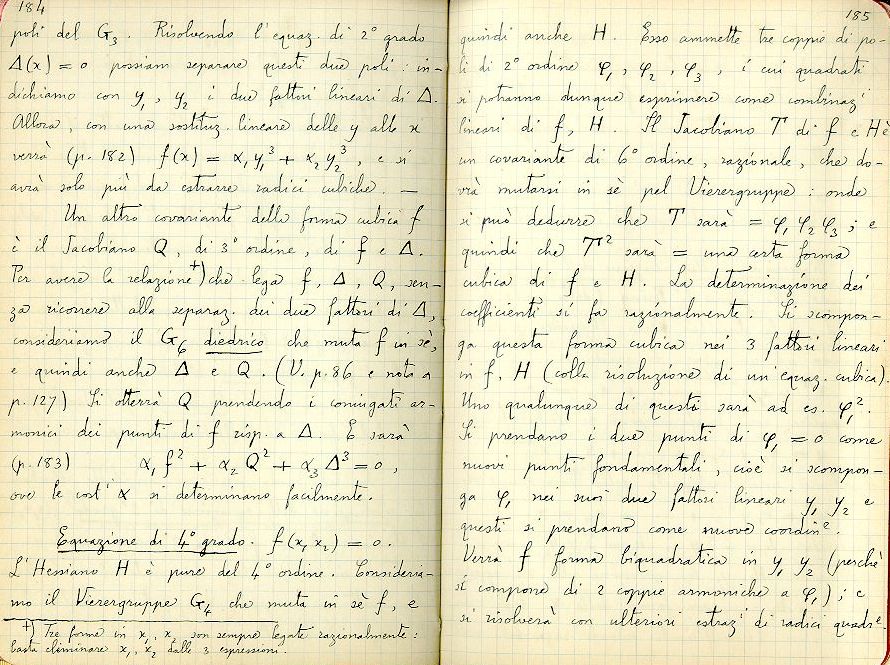 184
poli del G₃. Risolvendo l'equaz. di 2° grado
Δ(x) = 0 possiam separare questi due poli: in-
dichiamo con y₁, y₂ i due fattori lineari di Δ.
Allora, con una sostituz. lineare delle y alle x
verrà (p. 182) f(x) = α₁y₁³ + α₂y₂³, e si
avrà solo più da estrarre radici cubiche. —
Un altro covariante della forma cubica f
è il Jacobiano Q, di 3° ordine, di f e Δ.
Per avere la relazione +) che lega f, Δ, Q, sen-
za ricorrere alla separaz. dei due fattori di Δ,
consideriamo il G₆ diedrico che muta f in sè,
e quindi anche Δ e Q. (V. p. 86 e nota a
p. 127) Si otterrà Q prendendo i coniugati ar-
monici dei punti di f risp. a Δ. E sarà
(p. 183) α₁f² + α₂Q² + α₃Δ³ = 0,
ove le cost.ⁱ α si determinano facilmente.
Equazione di 4° grado. f(x₁x₂) = 0.
L'Hessiano H è pure del 4° ordine. Consideria-
mo il Vierergruppe G₄ che muta in sè f, e
+) Tre forme in x₁, x₂ son sempre legate razionalmente:
basta eliminare x₁, x₂ dalle 3 espressioni.
185
quindi anche H. Esso ammette tre coppie di po-
li di 2° ordine φ₁, φ₂, φ₃, i cui quadrati
si potranno dunque esprimere come combinaz.ⁱ
lineari di f, H. Il Jacobiano T di f e H è
un covariante di 6° ordine, razionale, che do-
vrà mutarsi in sè pel Vierergruppe: onde
si può dedurre che T sarà = φ₁φ₂φ₃; e
quindi che T² sarà = una certa forma
cubica di f e H. La determinazione dei
coefficienti si fa razionalmente. Si scompon-
ga questa forma cubica nei 3 fattori lineari
in f, H (colla risoluzione di un'equaz. cubica).
Uno qualunque di questi sarà ad es. φ₁².
Si prendano i due punti di φ₁ = 0 come
nuovi punti fondamentali, cioè si scompon-
ga φ₁ nei suoi due fattori lineari y₁ y₂ e
questi si prendano come nuove coordin.ᵉ
Verrà f forma biquadratica in y₁ y₂ (perchè
si compone di 2 coppie armoniche a φ₁); e
si risolverà con ulteriori estraz.ⁱ di radici quadr.ᵉ